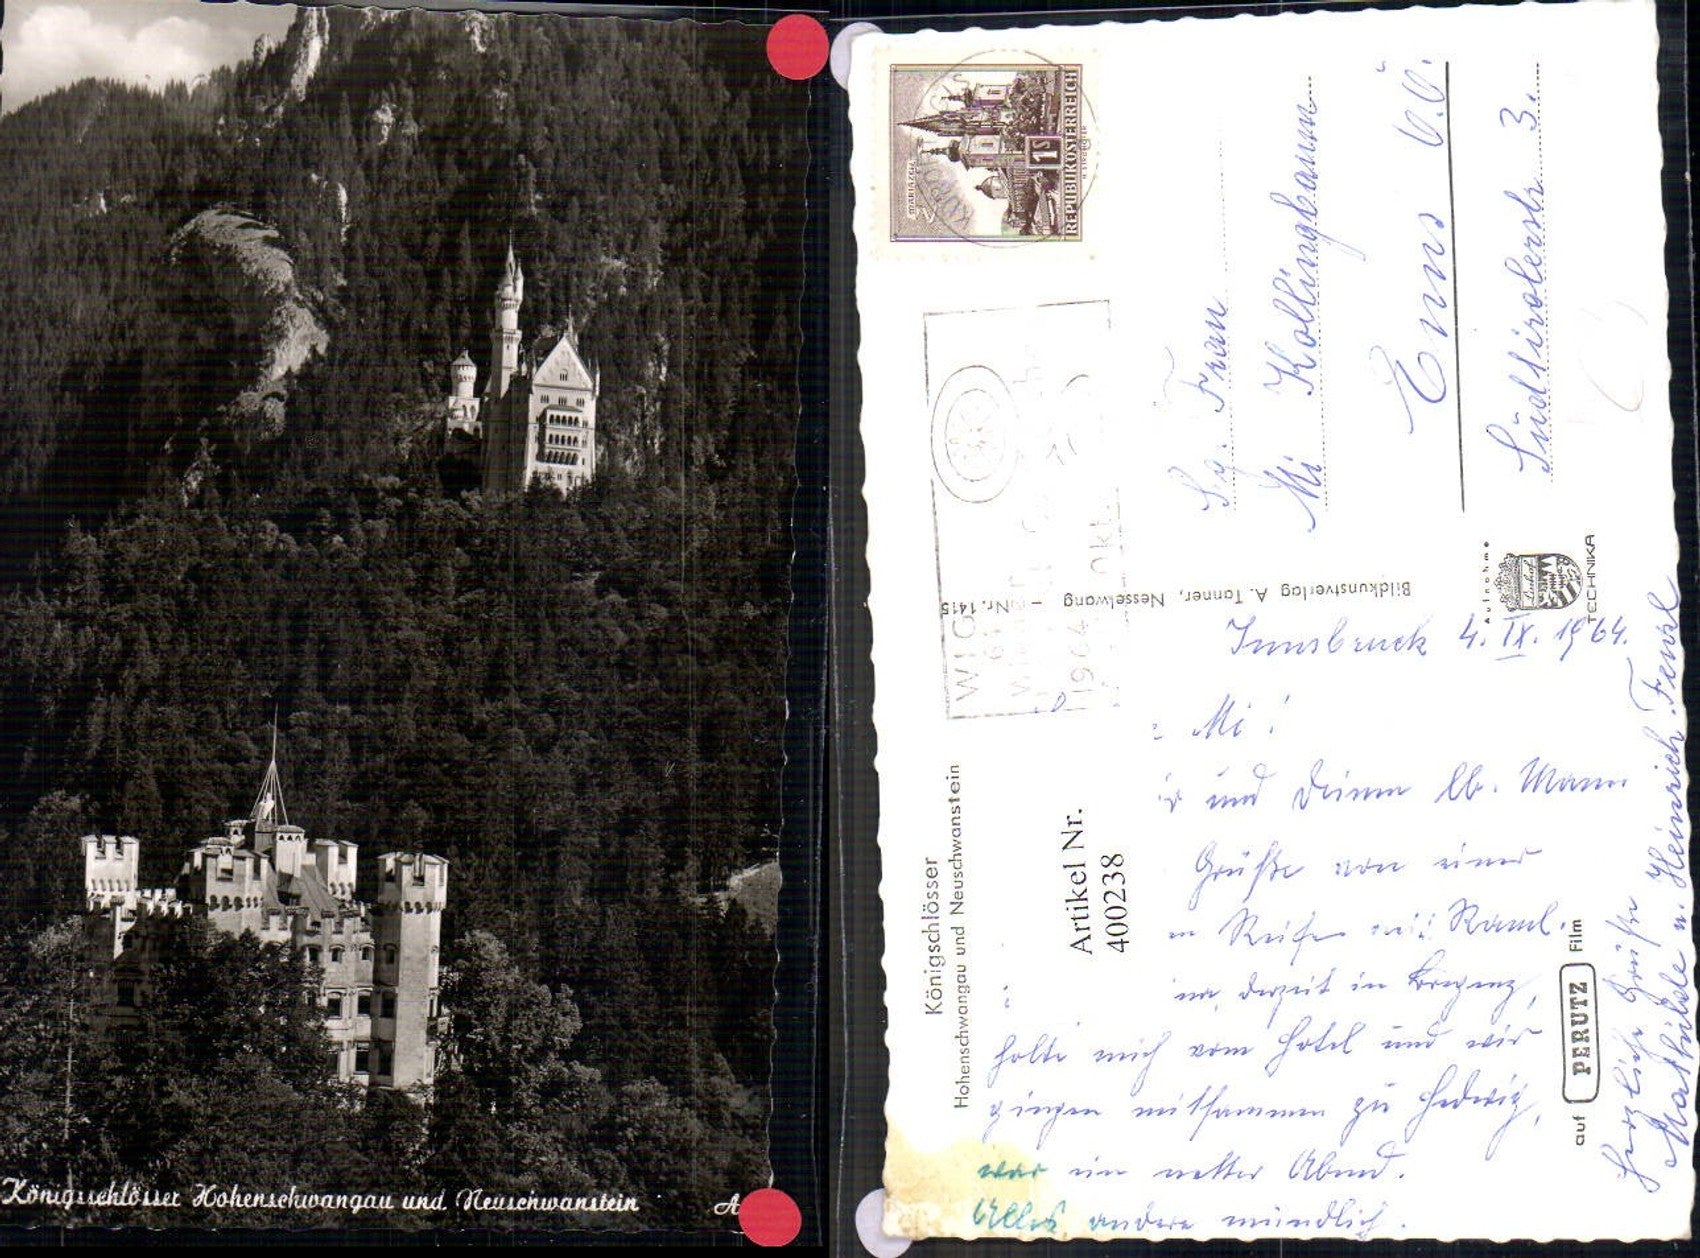 Königsschlösser Hohenschwangau und Neuschwanstein
A
MARIAZELL
1S
REPUBLIK ÖSTERREICH
WIG
1964
Okt.
Sg. Frau
Mi Kollingbaum
Enns O.Ö.
Südtirolerstr. 3.
Bildkunstverlag A. Tanner, Nesselwang – Nr. 1415
Aufnahme
TECHNIKA
auf PERUTZ Film
Königschlösser
Hohenschwangau und Neuschwanstein
Artikel Nr.
400238
Innsbruck 4. IX. 1964.
Mi!
und Deinem lb. Mann
Grüße von einer
Reise
derzeit in Bregenz,
holte mich vom Hotel und wir
gingen mitsammen zu Hedwig,
war ein netter Abend.
Alles andere mündlich.
Herzliche Grüße
Mathilde u. Heinrich